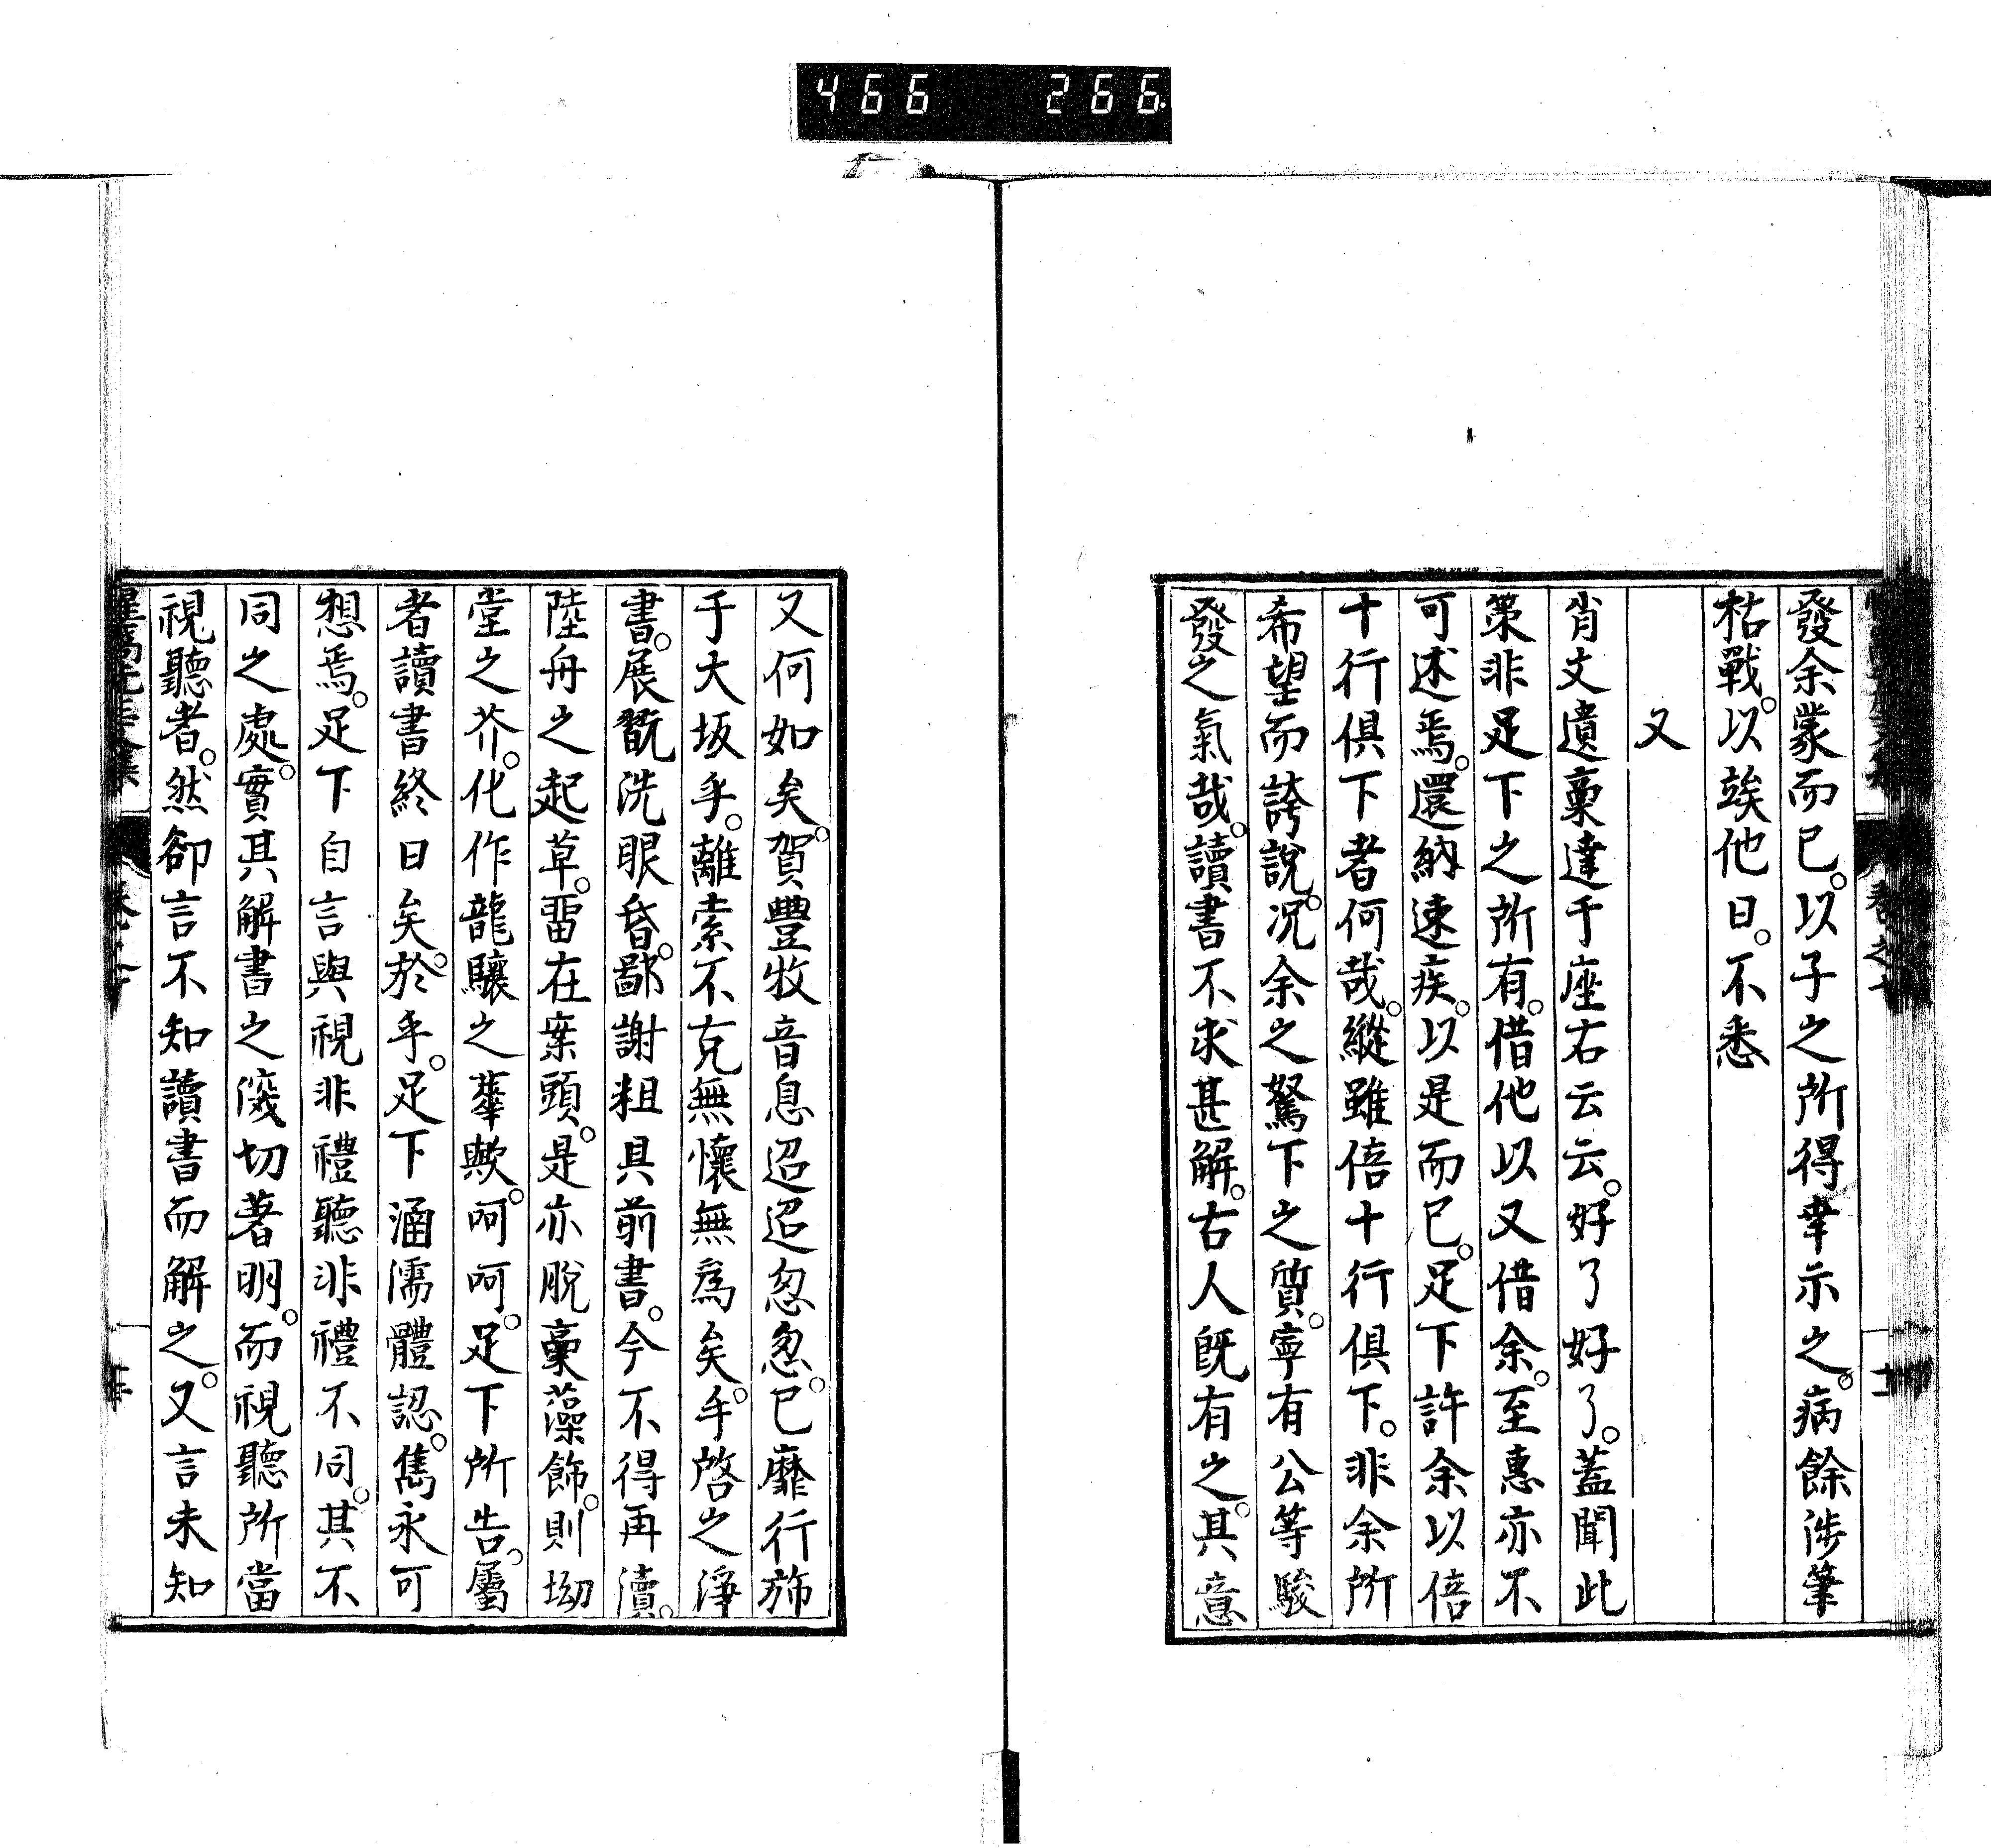 466 266
發余蒙而已。以子之所得幸示之。病餘涉筆
枯戰。以竢他日。不悉
又
肖文遺稾達于座右云云。好了好了。蓋聞此
策非足下之所有。借他以又借余。至惠亦不
可述焉。還納速疾。以是而已。足下許余以倍
十行俱下者何哉。縱雖倍十行俱下。非余所
希望而誇說。况余之駑下之質。寧有公等駿
發之氣哉。讀書不求甚解。古人旣有之。其意
又何如矣。賀豐牧音息迢迢忽忽。已靡行斾
于大坂乎。離索不克無懷無爲矣。手啓之淨
書。展翫洗眼昏。鄙謝粗具前書。今不得再瀆。
陸舟之起草。畱在案頭。是亦脫稾藻飾。則坳
堂之芥。化作龍驤之蕐歟。呵呵。足下所告。屬
者讀書終日矣。於乎。足下涵濡體認。雋永可
想焉。足下自言與視非禮聽非禮不同。其不
同之處。實其解書之深切著明。而視聽所當
視聽者。然卻言不知讀書而解之。又言未知